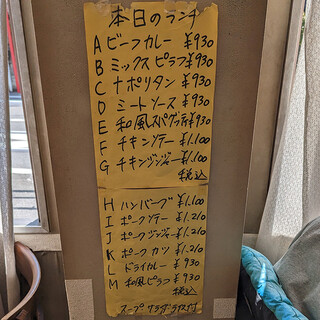 本日のランチ
A ビーフカレー ¥930
B ミックスピラフ ¥930
C ナポリタン ¥930
D ミートソース ¥930
E 和風スパゲッティ ¥930
F チキンソテー ¥1,100
G チキンジンジャー ¥1,100
税込
H ハンバーグ ¥1,100
I ポークソテー ¥1,210
J ポークジンジャー ¥1,210
K ポークカツ ¥1,210
L ドライカレー ¥930
M 和風ピラフ ¥930
税込
スープ サラダ ライス付